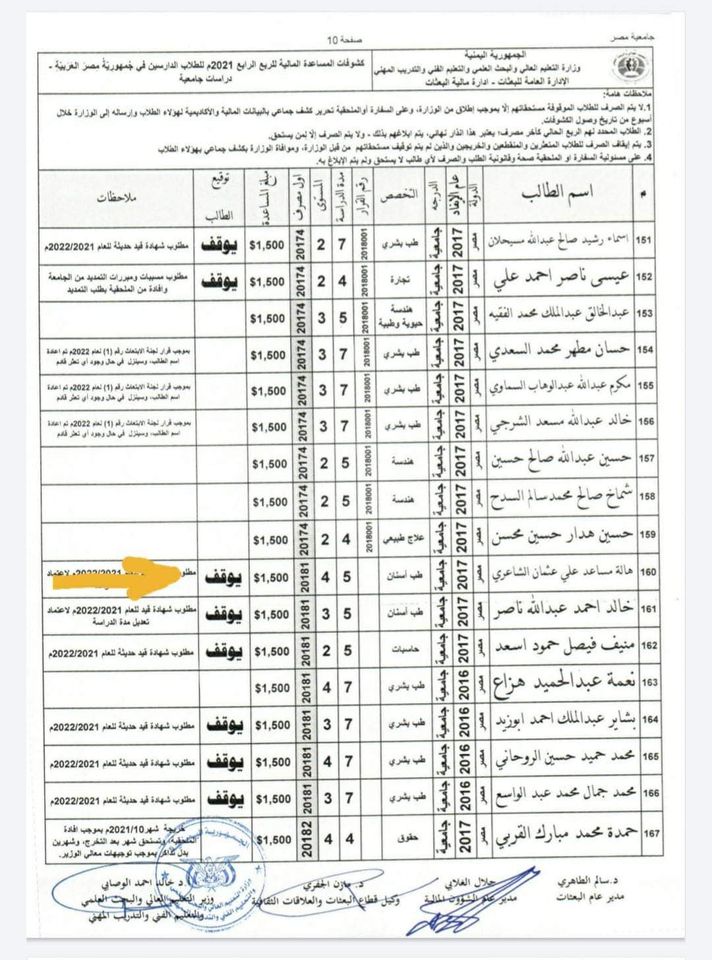 جامعية مصر
صفحة 10
الجمهورية اليمنية
وزارة التعليم العالي والبحث العلمي والتعليم الفني والتدريب المهني
الإدارة العامة للبعثات - ادارة مالية البعثات
كشوفات المساعدة المالية للربع الرابع 2021م للطلاب الدارسين في جُمهوريَّةُ مصرَ العَرَبيَّة -
دراسات جامعية
ملاحظات هامة:
1.لا يتم الصرف للطلاب الموقوفة مستحقاتهم إلّا بموجب إطلاق من الوزارة، وعلى السفارة أوالملحقية تحرير كشف جماعي بالبيانات المالية والأكاديمية لهؤلاء الطلاب وإرساله إلى الوزارة خلال
أسبوع من تاريخ وصول الكشوفات.
2. الطلاب المحدد لهم الربع الحالي كآخر مصرف؛ يعتبر هذا انذار نهائي، يتم ابلاغهم بذلك - ولا يتم الصرف إلّا لمن يستحق.
3. يتم إيقاف الصرف للطلاب المتعثرين والمنقطعين والخريجين والذين لم يتم توقيف مستحقاتهم من قبل الوزارة، وموافاة الوزارة بكشف جماعي بهؤلاء الطلاب
4. على مسئولية السفارة او الملحقية صحة وقانونية الطلب والصرف لأي طالب لا يستحق ولم يتم الإبلاغ به.
م اسم الطالب الدولة عام الإيفاد الدرجه التخصص رقم القرار مدة الدراسة المستوى اول مصرف مبلغ المساعدة توقيع الطالب ملاحظات
151 اسماء رشيد صالح عبدالله مسيحلان مصر 2017 جامعية طب بشري 2018001 7 2 20174 $1,500 يوقف مطلوب شهادة قيد حديثة للعام 2022/2021م
152 عيسى ناصر احمد علي مصر 2017 جامعية تجارة 2018001 4 2 20174 $1,500 يوقف مطلوب مسببات ومبررات التمديد من الجامعة
وافادة من الملحقية بطلب التمديد
153 عبدالخالق عبدالملك محمد الفقيه مصر 2017 جامعية هندسة
حيوية وطبية 2018001 5 3 20174 $1,500
154 حسان مطهر محمد السعدي مصر 2017 جامعية طب بشري 2018001 7 3 20174 $1,500 بموجب قرار لجنة الابتعاث رقم (1) لعام 2022م تم اعادة
اسم الطالب، وسينزل في حال وجود أي تعثر قادم
155 مكرم عبدالله عبدالوهاب السماوي مصر 2017 جامعية طب بشري 2018001 7 3 20174 $1,500 بموجب قرار لجنة الابتعاث رقم (1) لعام 2022م تم اعادة
اسم الطالب، وسينزل في حال وجود أي تعثر قادم
156 خالد عبدالله مسعد الشرجي مصر 2017 جامعية طب بشري 2018001 7 3 20174 $1,500 بموجب قرار لجنة الابتعاث رقم (1) لعام 2022م تم اعادة
اسم الطالب، وسينزل في حال وجود أي تعثر قادم
157 حسين عبدالله صالح حسين مصر 2017 جامعية هندسة 2018001 5 2 20174 $1,500
158 شماخ صالح محمد سالم السدح مصر 2017 جامعية هندسة 2018001 5 2 20174 $1,500
159 حسين هدار حسين محسن مصر 2017 جامعية علاج طبيعي 2018001 4 2 20174 $1,500
160 هالة مساعد علي عثمان الشاعري مصر 2017 جامعية طب أسنان 5 4 20181 $1,500 يوقف مطلوب 2022/2021م لاعتماد
161 خالد احمد عبدالله ناصر مصر 2017 جامعية طب أسنان 5 3 20181 $1,500 يوقف مطلوب شهادة قيد للعام 2022/2021م لاعتماد
تعديل مدة الدراسة
162 منيف فيصل حمود اسعد مصر 2017 جامعية حاسبات 5 2 20181 $1,500 يوقف مطلوب شهادة قيد حديثة للعام 2022/2021م
163 نعمة عبدالحميد هزاع مصر 2016 جامعية طب بشري 7 4 20181 $1,500
164 بشاير عبدالملك احمد ابوزيد مصر 2016 جامعية طب بشري 7 3 20181 $1,500 يوقف مطلوب شهادة قيد حديثة للعام 2022/2021م
165 محمد حميد حسين الروحاني مصر 2016 جامعية طب بشري 7 4 20181 $1,500 يوقف مطلوب شهادة قيد حديثة للعام 2022/2021م
166 محمد جمال محمد عبد الواسع مصر 2016 جامعية طب بشري 7 3 20181 $1,500 يوقف مطلوب شهادة قيد حديثة للعام 2022/2021م
167 حمدة محمد مبارك القربي مصر 2017 جامعية حقوق 4 4 20182 $1,500 خريجة شهر 2021/10م بموجب افادة
الملحقية، وتستحق شهر بعد التخرج، وشهرين
بدل تذاكر بموجب توجيهات معالي الوزير.
د.سالم الطاهري
مدير عام البعثات
جلال الغلابي
مدير عام الشؤون المالية
د. مازن الجفري
وكيل قطاع البعثات والعلاقات الثقافية
د خالد احمد الوصابي
وزير التعليم العالي والبحث العلمي
والتعليم الفني والتدريب المهني